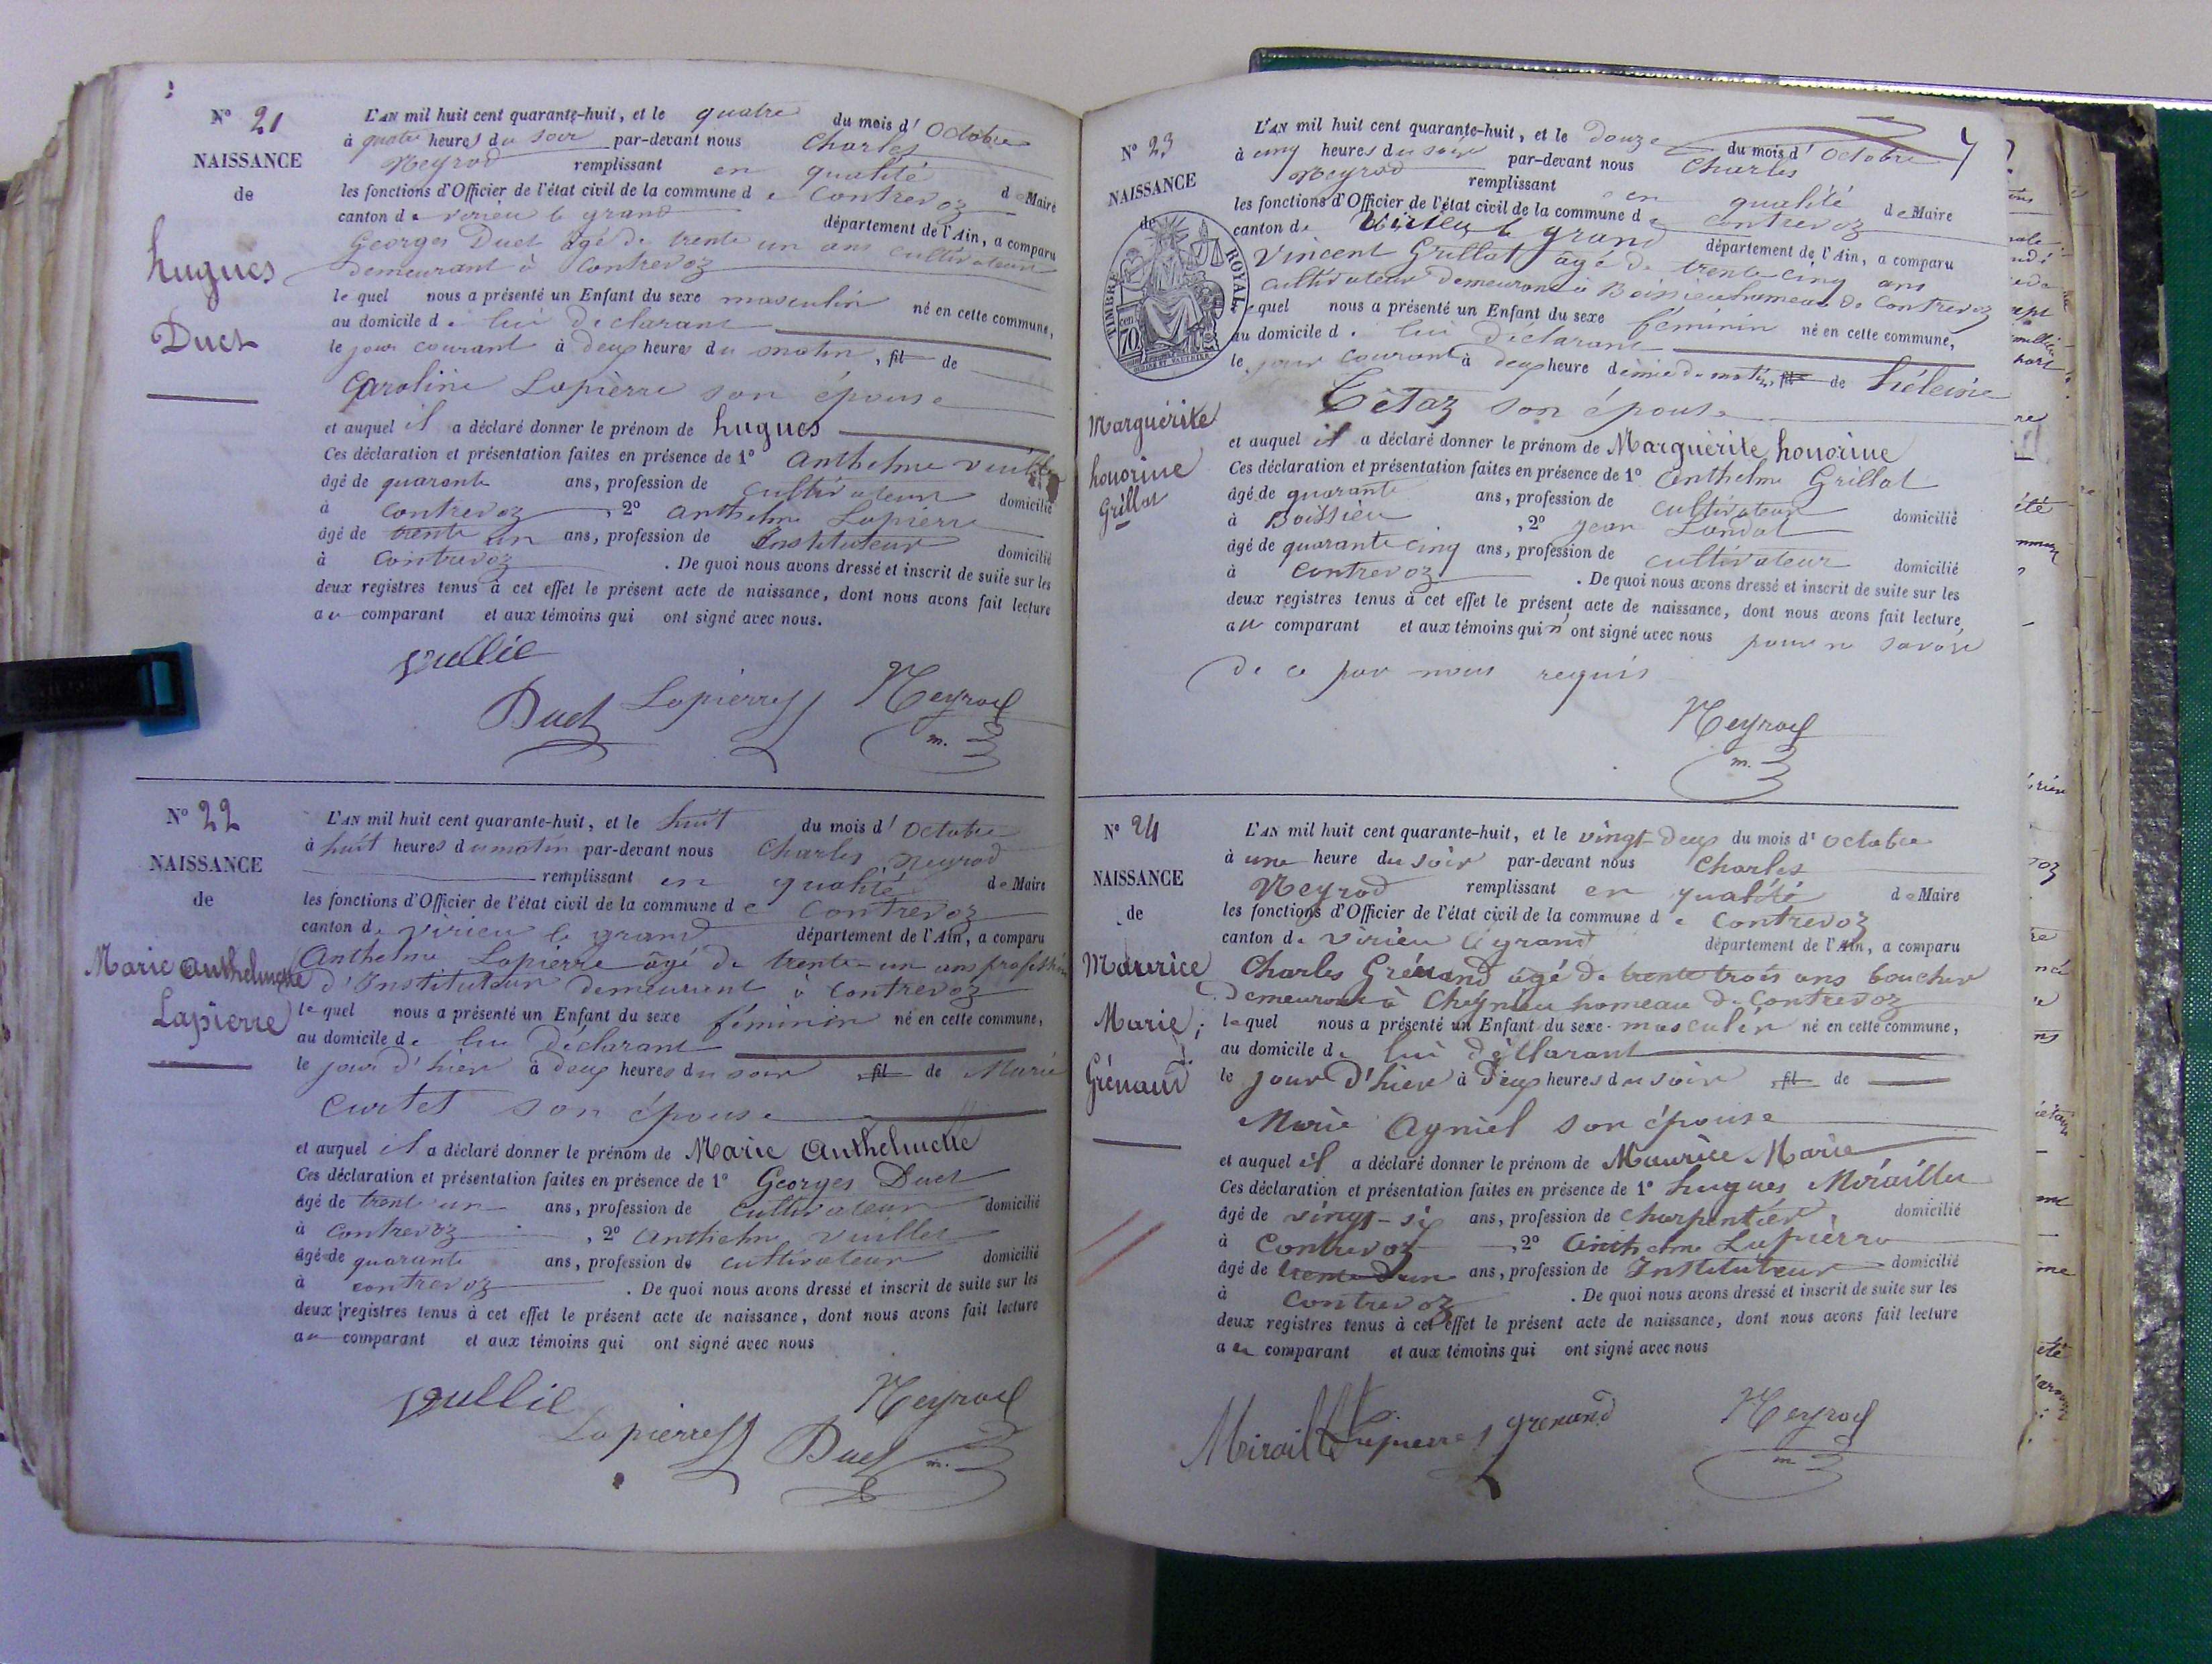 N° 21
NAISSANCE
de
hugues
Duet
L'AN mil huit cent quarante-huit, et le quatre du mois d'Octobre
à quatre heures du soir par-devant nous Charles
Neyrod remplissant en qualité de Maire
les fonctions d'Officier de l'état civil de la commune de Contrevoz
canton de virieu le grand département de l'Ain, a comparu
Georges Duet âgé de trente un ans cultivateur
demeurant à Contrevoz
lequel nous a présenté un Enfant du sexe masculin né en cette commune,
au domicile de lui déclarant
le jour courant à deux heures du matin, fil de
Caroline Lapierre son épouse
et auquel il a déclaré donner le prénom de hugues
Ces déclaration et présentation faites en présence de 1° anthelme vuillet
âgé de quarante ans, profession de cultivateur domicilié
à contrevoz, 2° anthelme Lapierre
âgé de trente un ans, profession de Instituteur domicilié
à Contrevoz. De quoi nous avons dressé et inscrit de suite sur les
deux registres tenus à cet effet le présent acte de naissance, dont nous avons fait lecture
au comparant et aux témoins qui ont signé avec nous.
Duet Lapierre Neyrod
m.
N° 22
NAISSANCE
de
Marie anthelmette
Lapierre
L'AN mil huit cent quarante-huit, et le huit du mois d'Octobre
à huit heures du matin par-devant nous Charles Neyrod
remplissant en qualité de Maire
les fonctions d'Officier de l'état civil de la commune de Contrevoz
canton de virieu le grand département de l'Ain, a comparu
Anthelme Lapierre âgé de trente-un ans profession
d'Instituteur demeurant à Contrevoz
lequel nous a présenté un Enfant du sexe féminin né en cette commune,
au domicile de lui déclarant
le jour d'hier à deux heures du soir fil de Marie
Curtet son épouse
et auquel il a déclaré donner le prénom de Marie Anthelmette
Ces déclaration et présentation faites en présence de 1° Georges Duet
âgé de trente un ans, profession de cultivateur domicilié
à contrevoz, 2° anthelme vuillet
âgé de quarante ans, profession de cultivateur domicilié
à contrevoz. De quoi nous avons dressé et inscrit de suite sur les
deux registres tenus à cet effet le présent acte de naissance, dont nous avons fait lecture
au comparant et aux témoins qui ont signé avec nous
Neyrod
Lapierre Duet m.
7
N° 23
NAISSANCE
de
TIMBRE ROYAL
70 cen
Marguérite
honorine
Grillat
L'AN mil huit cent quarante-huit, et le douze du mois d'Octobre
à cinq heures du soir par-devant nous Charles
Neyrod remplissant en qualité de Maire
les fonctions d'Officier de l'état civil de la commune de contrevoz
canton de Virieu le grand département de l'Ain, a comparu
Vincent Grillat âgé de trente cinq ans
cultivateur demeurant à Boissieu hameau de Contrevoz
lequel nous a présenté un Enfant du sexe féminin né en cette commune,
au domicile de lui déclarant
le jour courant à deux heure demie du matin, fil de
son épouse
et auquel il a déclaré donner le prénom de Marguérite honorine
Ces déclaration et présentation faites en présence de 1° Anthelme Grillat
âgé de quarante ans, profession de cultivateur domicilié
à Boissieu, 2° jean
âgé de quarante cinq ans, profession de cultivateur domicilié
à Contrevoz. De quoi nous avons dressé et inscrit de suite sur les
deux registres tenus à cet effet le présent acte de naissance, dont nous avons fait lecture,
au comparant et aux témoins qui n'ont signé avec nous pour ne savoir
de ce par nous requis
Neyrod
m.
N° 24
NAISSANCE
de
Maurice
Marie
Grénaud
L'AN mil huit cent quarante-huit, et le vingt-deux du mois d'Octobre
à une heure du soir par-devant nous Charles
Neyrod remplissant en qualité de Maire
les fonctions d'Officier de l'état civil de la commune de Contrevoz
canton de Virieu le grand département de l'Ain, a comparu
Charles Grénaud âgé de trente trois ans boucher
demeurant à Cheynieu hameau de Contrevoz
lequel nous a présenté un Enfant du sexe masculin né en cette commune,
au domicile de lui déclarant
le jour d'hier à deux heures du soir fil de
Marie Ayniel son épouse
et auquel il a déclaré donner le prénom de Maurice Marie
Ces déclaration et présentation faites en présence de 1° hugues Mirailler
âgé de vingt-six ans, profession de charpentier, domicilié
à Contrevoz, 2° Anthelme Lapierre
âgé de trente un ans, profession de Instituteur domicilié
à Contrevoz. De quoi nous avons dressé et inscrit de suite sur les
deux registres tenus à cet effet le présent acte de naissance, dont nous avons fait lecture
au comparant et aux témoins qui ont signé avec nous
Lapierre grenaud Neyrod
m